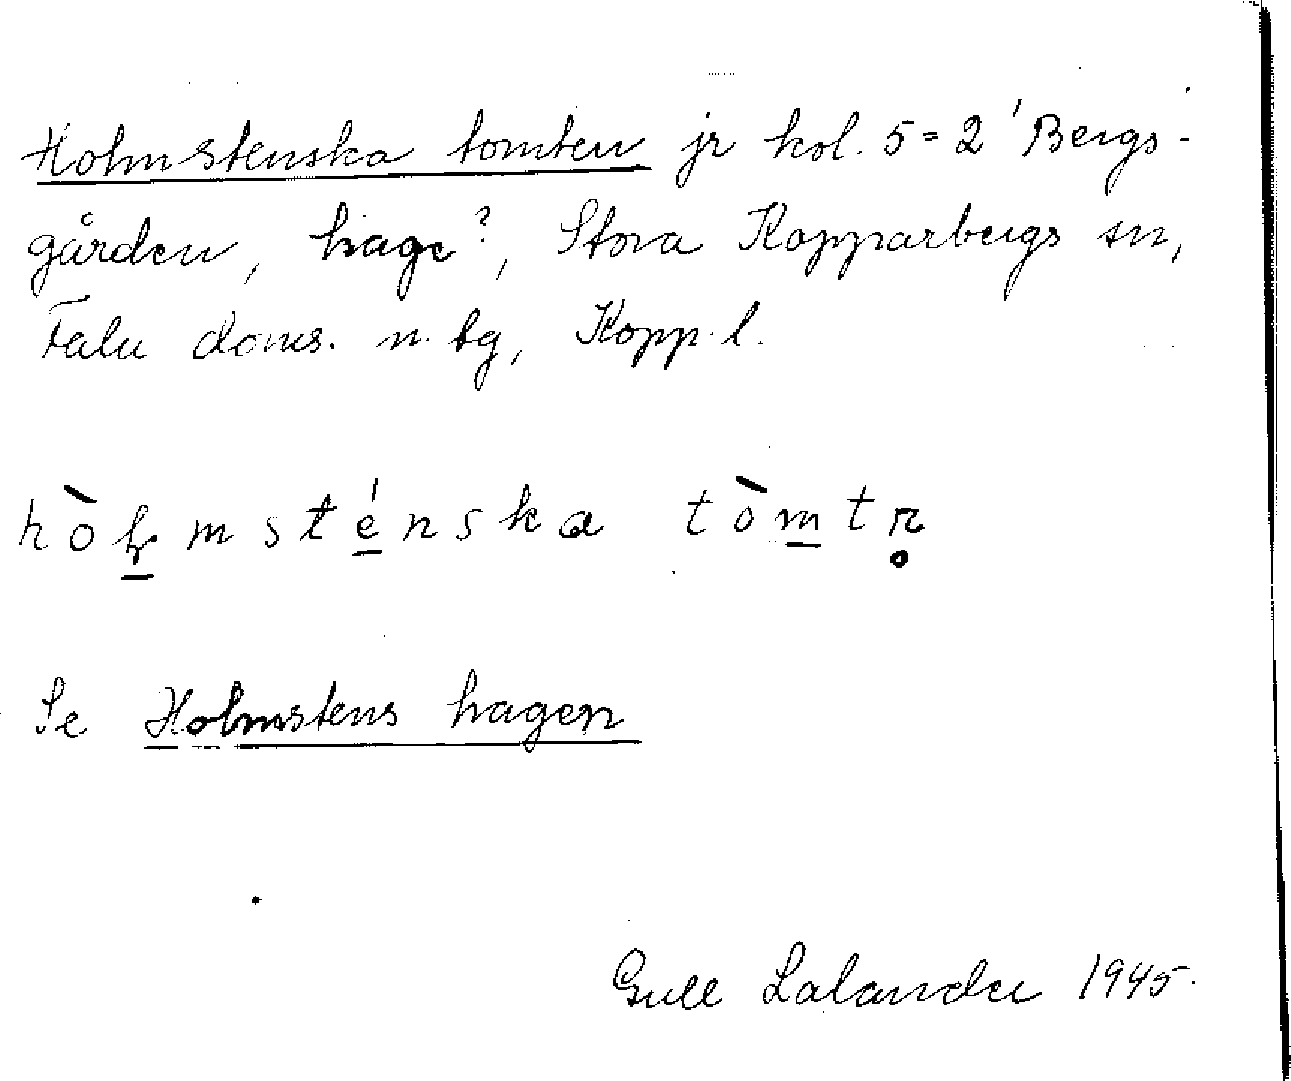 Holmstenska tomten jr kol. 5=2' Bergs-
gården, hage?, Stora Kopparbergs sn,
Falu doms. n. tg, Kopp. l.
hòl̠msté̠nska tòm̠tn̥
Se Holmstens hagen
Gull Lalander 1945.